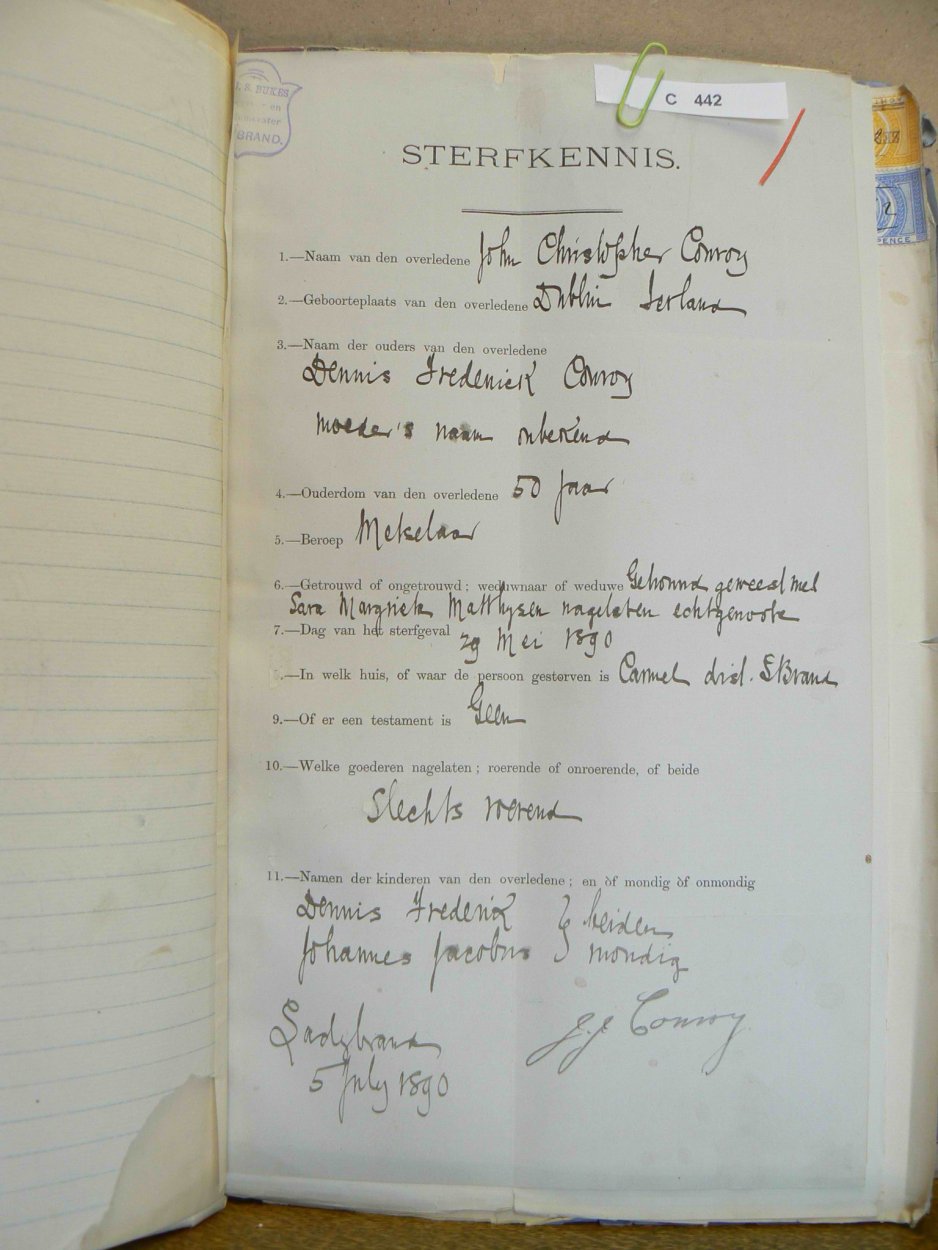 J. S. BUKES
en
BRAND.
C 442
STERFKENNIS.
1.—Naam van den overledene John Christopher Conroy
2.—Geboorteplaats van den overledene Dublin Ierland
3.—Naam der ouders van den overledene
Dennis Frederick Conroy
moeder's naam onbekend
4.—Ouderdom van den overledene 50 Jaar
5.—Beroep Metselaar
6.—Getrouwd of ongetrouwd; weduwnaar of weduwe Getrouwd geweest met
Sara Margriet Matthysen nagelaten echtgenoote
7.—Dag van het sterfgeval 29 Mei 1890
.—In welk huis, of waar de persoon gestorven is Carmel dist. LBrand
9.—Of er een testament is Geen
10.—Welke goederen nagelaten; roerende of onroerende, of beide
Slechts roerend
11.—Namen der kinderen van den overledene; en òf mondig òf onmondig
Dennis Frederik } beiden
Johannes Jacobus } mondig
Ladybrand
J. J. Conroy
5 July 1890
PENCE